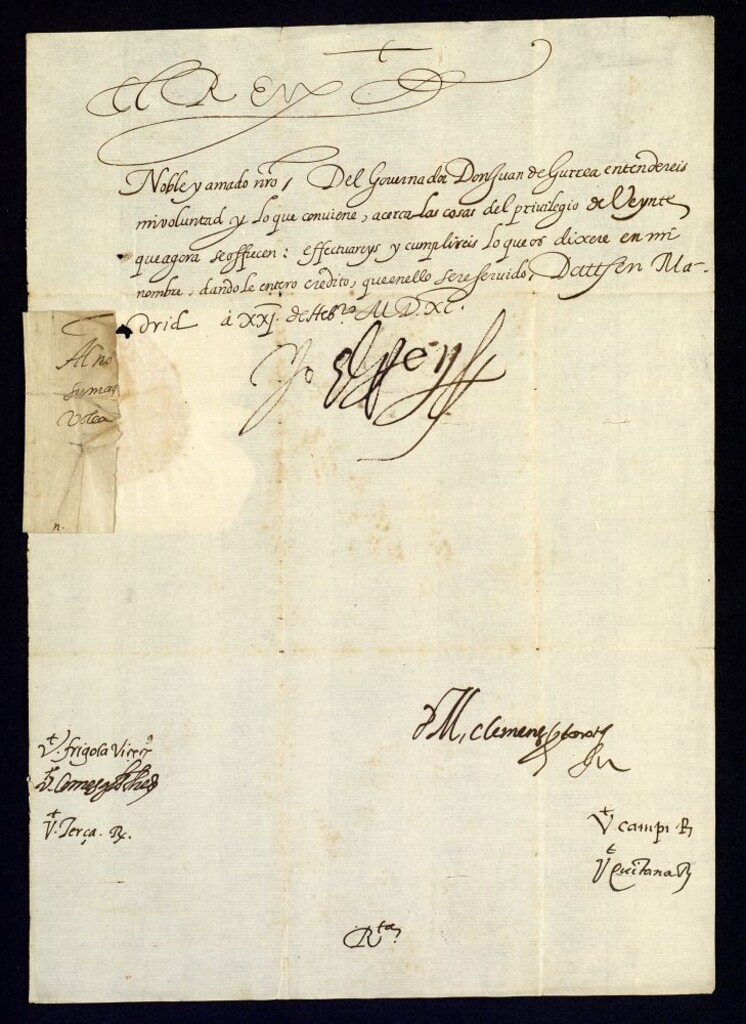 El Rey
Noble y amado nro, Del Governador Don Juan de Gurrea entendereis
mi voluntad y lo que conviene, acerca las cosas del privilegio de Veynte
que agora se offrecen: effectuareys y cumplireis lo que os dixere en mi
nombre, dandole entero credito, que en ello sere servido, Datt. en Ma-
drid á XXJ. de Hebro. M D XC.
Yo el Rey
Al no
V. frigola Vicecs
V. Comes
V. Terça. R.
M. Clemens
V campi R
V Quintana R
Rta